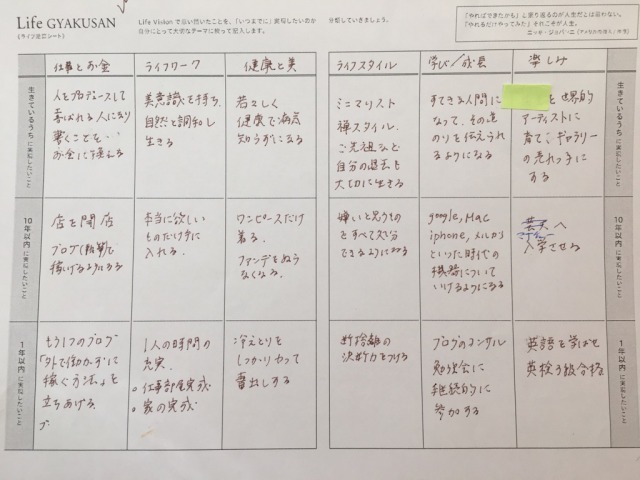 Life GYAKUSAN
《ライフ逆算シート》
Life Visionで思い描いたことを、「いつまでに」実現したいのか
自分にとって大切なテーマに絞って記入します。
分類していきましょう。
「やればできたかも」と振り返るのが人生だとは思わない。
「やれるだけやってみた」それこそが人生。
ニッキ・ジョバンニ
仕事とお金
ライフワーク
健康と美
ライフスタイル
学び/成長
楽しみ
生きているうちに実現したいこと
人をプロデュースして
喜ばれる人になり
書くことを・・
お金に換える
美意識を持ち、
自然と調和し
生きる
若々しく
健康で病院
知らずになる
ミニマリスト
禅スタイル.
ご先祖など
自分の過去も
大切に生きる
すてきな人間に
なって、その道
のりを伝えられ
るようになる
を世界的
アーティストに
育て、ギャラリー
の売れっ子に
する
生きているうちに実現したいこと
10年以内に実現したいこと
店を閉店
ブログ(転筆)で
稼げるようになる
本当に欲しい
ものだけ手に
入れる.
ワンピースだけ
着る.
ファンデをぬら
なくなる.
嫌いと思うもの
をすべて処分
できるようになる
google, Mac
iphone, メルカリ
といった時代の
機器について
いけるようになる
へ
入学させる
10年以内に実現したいこと
1年以内に実現したいこと
もう1つのブログ
「外で働かずに
稼ぐ方法」を
立ちあげる.
ブ
1人の時間の
充実.
。仕事部屋実成
。家の実成
冷えとりを
しっかりやって
毒出しする
断捨離の
決断力をつける
ブログのコンサル
勉強会に
継続的に
参加する
英語を学ばせ
英検3級合格
1年以内に実現したいこと